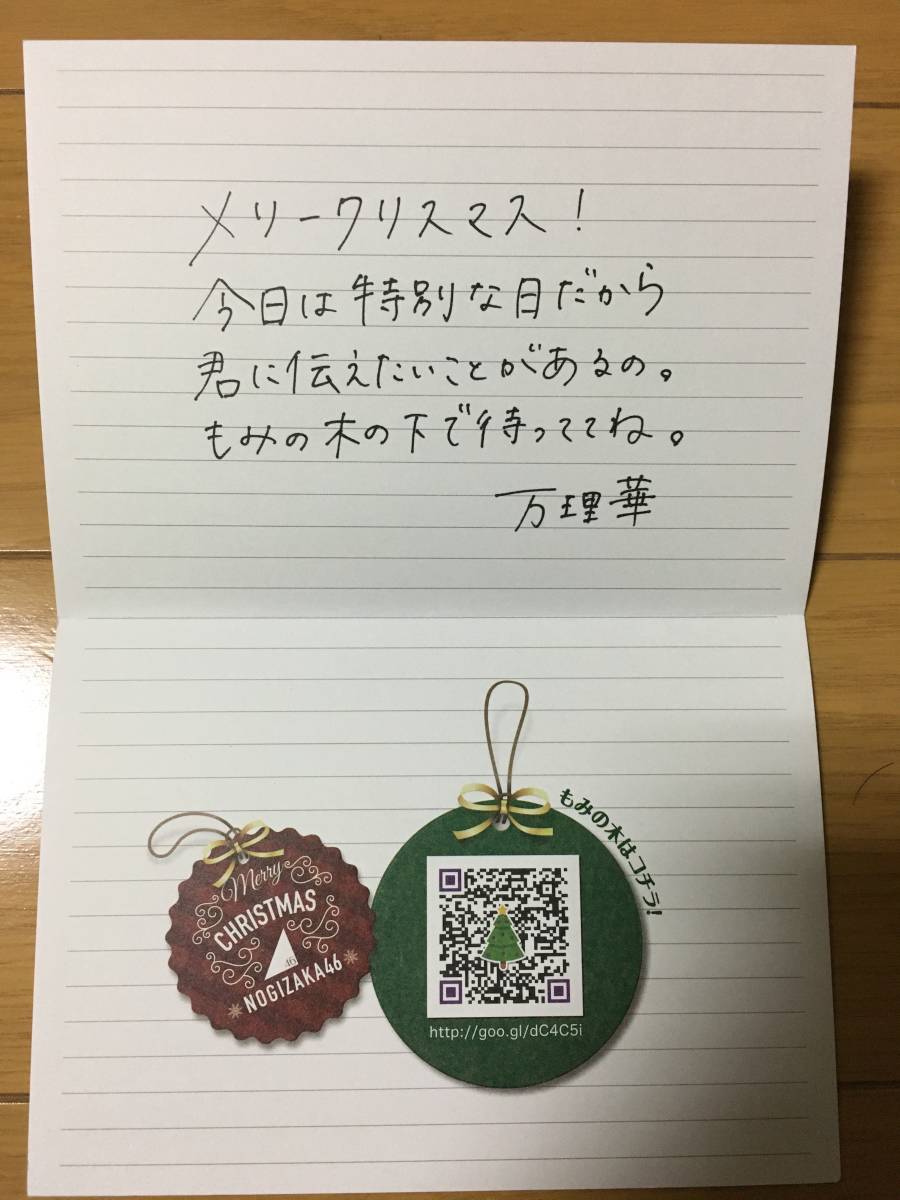 メリークリスマス!
今日は特別な日だから
君に伝えたいことがあるの。
もみの木の下で待っててね。
万理華
もみの木はコチラ!
Merry
CHRISTMAS
46
NOGIZAKA46
http://goo.gl/dC4C5i